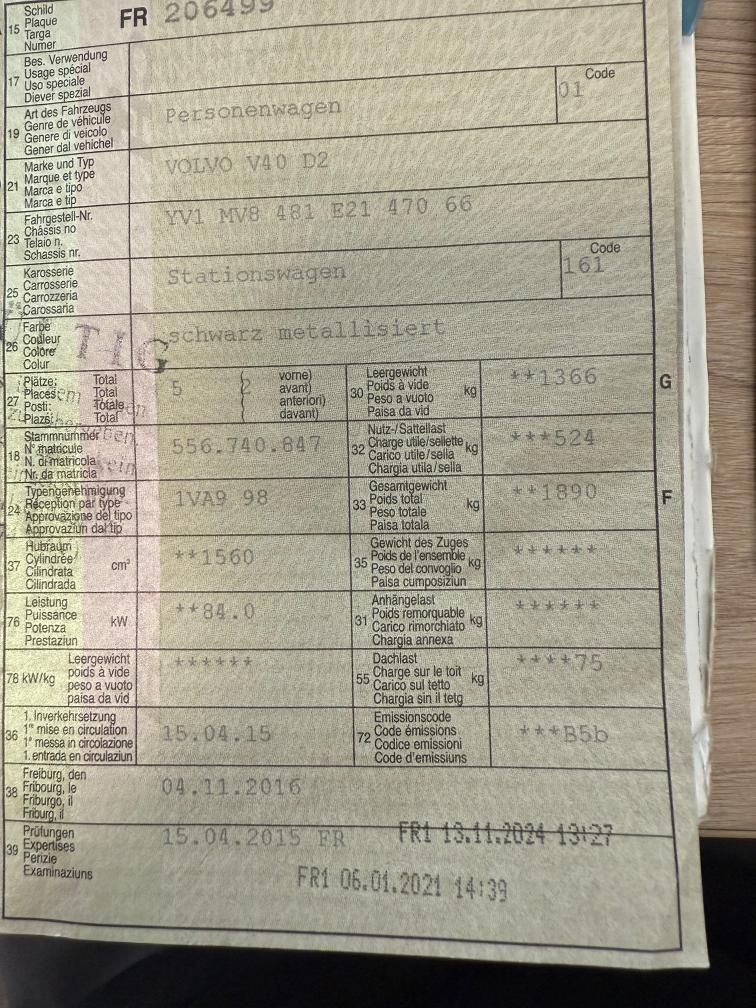 15 Schild
Plaque
Targa
Numer
FR 206499
17 Bes. Verwendung
Usage spécial
Uso speciale
Diever spezial
19 Art des Fahrzeugs
Genre de véhicule
Genere di veicolo
Gener dal vehichel
Personenwagen
Code
01
21 Marke und Typ
Marque et type
Marca e tipo
Marca e tip
VOLVO V40 D2
23 Fahrgestell-Nr.
Châssis no
Telaio n.
Schassis nr.
YV1 MV8 481 E21 470 66
25 Karosserie
Carrosserie
Carrozzeria
Carossaria
Stationswagen
Code
161
26 Farbe
Couleur
Colore
Colur
schwarz metallisiert
27 Plätze: Total
Places: Total
Posti: Totale
Plazs: Total
5 (2 vorne)
avant)
anteriori)
davant)
30 Leergewicht
Poids à vide
Peso a vuoto
Paisa da vid
kg
**1366
G
18 Stammnummer
N° matricule
N. di matricola
Nr. da matricla
556.740.847
32 Nutz-/Sattellast
Charge utile/sellette
Carico utile/sella
Chargia utila/sella
kg
***524
24 Typengenehmigung
Réception par type
Approvazione del tipo
Approvaziun dal tip
1VA9 98
33 Gesamtgewicht
Poids total
Peso totale
Paisa totala
kg
**1890
F
37 Hubraum
Cylindrée
Cilindrata
Cilindrada
cm³
**1560
35 Gewicht des Zuges
Poids de l'ensemble
Peso del convoglio
Paisa cumposiziun
kg
******
76 Leistung
Puissance
Potenza
Prestaziun
kW
**84.0
31 Anhängelast
Poids remorquable
Carico rimorchiato
Chargia annexa
kg
******
78 kW/kg Leergewicht
poids à vide
peso a vuoto
paisa da vid
******
55 Dachlast
Charge sur le toit
Carico sul tetto
Chargia sin il tetg
kg
****75
36 1. Inverkehrsetzung
1re mise en circulation
1a messa in circolazione
1. entrada en circulaziun
15.04.15
72 Emissionscode
Code émissions
Codice emissioni
Code d'emissiuns
***B5b
38 Freiburg, den
Fribourg, le
Friburgo, il
Friburg, il
04.11.2016
39 Prüfungen
Expertises
Perizie
Examinaziuns
15.04.2015 FR
FR1 13.11.2024 13:27
FR1 06.01.2021 14:39